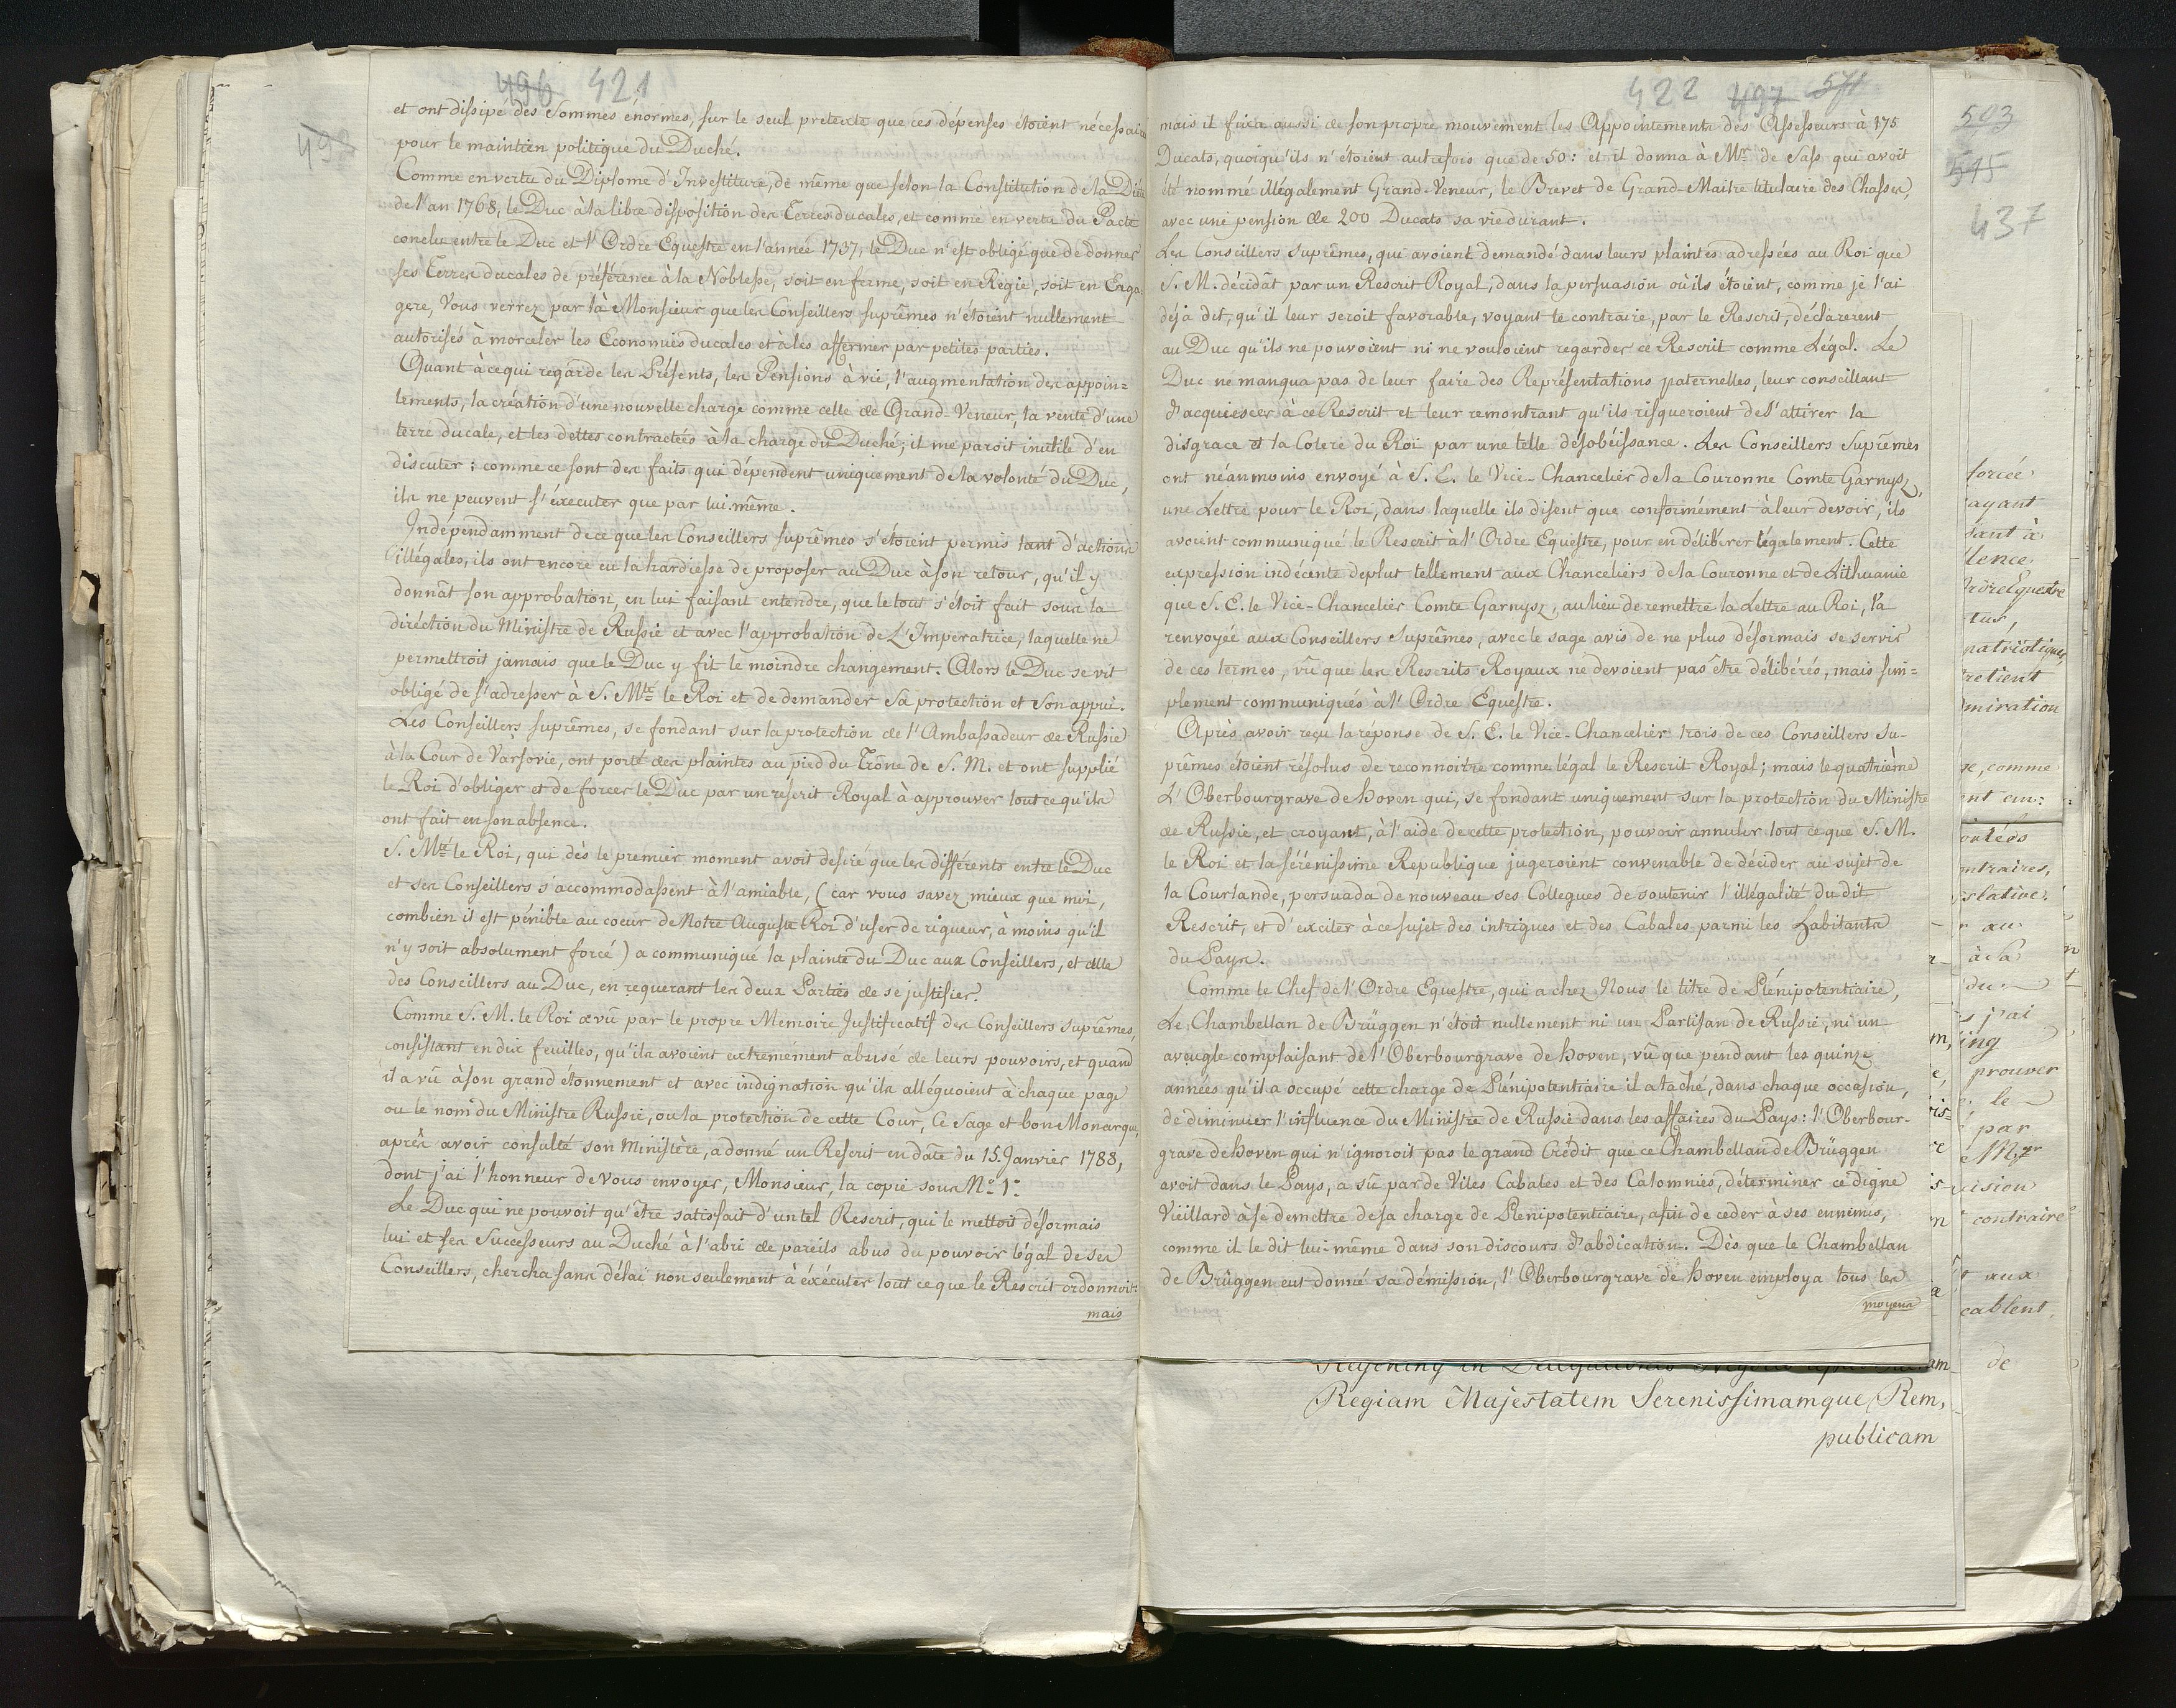 496 421
498
et ont dissipé des Sommes énormes, sur le seul pretexte que ces dépenses étoient nécessai
pour le maintien politique du Duché.
Comme en vertu du Diplome d'Investiture, de même que selon la Constitution de la Diète
de l'an 1768, le Duc à la libre disposition des Terres ducales, et comme en vertu du Pacte
conclu entre le Duc et l'Ordre Equestre en l'année 1737, le Duc n'est obligé que de donner
ses Terres ducales de préférence à la Noblesse, soit en ferme, soit en Regie, soit en Enga=
gere, Vous verrez par là Monsieur que les Conseillers suprêmes n'étoient nullement
autorisés à morceler les Economies ducales et à les affermer par petites parties.
Quant à ce qui regarde les Présents, les Pensions à vie, l'augmentation des appoin=
tements, la création d'une nouvelle charge comme celle de Grand-Veneur, la vente d'une
terre ducale, et les dettes contractées à la charge du Duché; il me paroit inutile d'en
discuter: comme ce sont des faits qui dépendent uniquement de la volonté du Duc,
ils ne peuvent s'éxecuter que par lui même.
Indépendamment de ce que les Conseillers suprêmes s'étoient permis tant d'actions
illégales, ils ont encore eu la hardiesse de proposer au Duc à son retour, qu'il y
donnât son approbation, en lui faisant entendre, que le tout s'étoit fait sous la
diréction du Ministre de Russie et avec l'approbation de L'Imperatrice, laquelle ne
permettroit jamais que le Duc y fit le moindre changement. Alors le Duc se vit
obligé de s'adresser à S. Mté le Roi et de demander Sa protection et Son appui.
Les Conseillers suprêmes, se fondant sur la protection de l'Ambassadeur de Russie
à la Cour de Varsovie, ont porté des plaintes au pied du Trône de S. M. et ont supplié
le Roi d'obliger et de forcer le Duc par un réscrit Royal à approuver tout ce qu'ils
ont fait en son absence.
S. Mté le Roi, qui dès le premier moment avoit desiré que les différents entre le Duc
et ses Conseillers s'accommodassent à l'amiable, (car vous savez mieux que moi,
combien il est pénible au coeur de Notre Auguste Roi d'user de rigueur, à moins qu'il
n'y soit absolument forcé) a communiqué la plainte du Duc aux Conseillers, et celle
des Conseillers au Duc, en requerant les deux Parties de se justifier.
Comme S. M. le Roi a vû par le propre Memoire Justificatif des Conseillers suprêmes,
consistant en dix feuilles, qu'ils avoient extremément abusé de leurs pouvoirs, et quand
il a vû à son grand étonnement et avec indignation qu'ils alléguoient à chaque page
ou le nom du Ministre Russie, ou la protection de cette Cour, Ce Sage et bon Monarque,
après avoir consulté son Ministère, a donné un Rescrit en date du 15. Janvier 1788,
dont j'ai l'honneur de vous envoyer, Monsieur, la copie sous No 1o
Le Duc qui ne pouvoit qu'être satisfait d'un tel Rescrit, qui le mettoit désormais
lui et ses Successeurs au Duché à l'abri de pareils abus du pouvoir légal de ses
Conseillers, chercha sans délai non seulement à éxécuter tout ce que le Rescrit ordonnoit:
mais
422 497 571
mais il fixa aussi de son propre mouvement les Appointements des Assesseurs à 175
Ducats, quoiqu'ils n'étoient autrefois que de 50: et il donna à Mr. de Sass qui avoit
été nommé illégalement Grand-Veneur, le Brevet de Grand-Maitre titulaire des Chasses,
avec une pension de 200 Ducats sa vie durant.
Les Conseillers Suprêmes, qui avoient demandé dans leurs plaintes adressées au Roi que
S. M. décidât par un Rescrit Royal, dans la persuasion où ils étoient, comme je l'ai
déjà dit, qu'il leur seroit favorable, voyant le contraire, par le Rescrit, déclarerent
au Duc qu'ils ne pouvoient ni ne vouloient regarder ce Rescrit comme Légal. Le
Duc ne manqua pas de leur faire des Représentations paternelles, leur conseillant
d'acquiescer à ce Rescrit et leur remontrant qu'ils risqueroient de s'attirer la
disgrace et la Colere du Roi par une telle désobéissance. Les Conseillers Suprêmes
ont néanmoins envoyé à S. E. le Vice-Chancelier de la Couronne Comte Garnysz,
une Lettre pour le Roi, dans laquelle ils disent que conformément à leur devoir, ils
avoient communiqué le Rescrit à l'Ordre Equestre, pour en délibérer légalement. Cette
expression indécente deplut tellement aux Chanceliers de la Couronne et de Lithuanie
que S. E. le Vice-Chancelier Comte Garnysz, au lieu de remettre la Lettre au Roi, l'a
renvoyée aux Conseillers Suprêmes, avec le sage avis de ne plus désormais se servir
de ces termes, vû que les Rescrits Royaux ne devoient pas être délibérés, mais sim=
plement communiqués à l'Ordre Equestre.
Après avoir reçu la réponse de S. E. le Vice-Chancelier trois de ces Conseillers Su-
prêmes étoient résolus de reconnoitre comme légal le Rescrit Royal; mais le quatrième
L'Oberbourgrave de Hoven qui, se fondant uniquement sur la protection du Ministre
de Russie, et croyant, à l'aide de cette protection, pouvoir annuler tout ce que S. M.
le Roi et la sérénissime Republique jugeroient convenable de décider au sujet de
la Courlande, persuada de nouveau ses Collegues de soutenir l'illégalité du dit
Rescrit, et d'exciter à ce sujet des intrigues et des Cabales parmi les Habitants
du Pays.
Comme le Chef de l'Ordre Equestre, qui a chez Nous le titre de Plénipotentiaire,
Le Chambellan de Brüggen n'étoit nullement ni un Partisan de Russie, ni un
aveugle complaisant de l'Oberbourgrave de Hoven, vû que pendant les quinze
années qu'il a occupé cette charge de Plénipotentiaire il a taché, dans chaque occasion,
de diminuer l'influence du Ministre de Russie dans les affaires du Pays: l'Oberbour-
grave de Hoven qui n'ignoroit pas le grand Crédit que ce Chambellan de Brüggen
avoit dans le Pays, a sû par de Viles Cabales et des Calomnies, déterminer ce digne
Vieillard à se demettre de sa charge de Plenipotentiaire, afin de ceder à ses ennemis,
comme il le dit lui-même dans son discours d'abdication. Dès que le Chambellan
de Brüggen eut donné sa démission, l'Oberbourgrave de Hoven employa tous les
moyens
Regiam Majestatem Serenissimamque Rem,
publicam
503
545
437
forcée
ayant
sant à
lence
Ordre Equestre
tus,
patriotiques,
retient
miration
se, comme
ontraires,
islative,
au
à la
du
s j'ai
ing
prouver
le
par
Mgr
vision
contraire
aux
cablent,
de